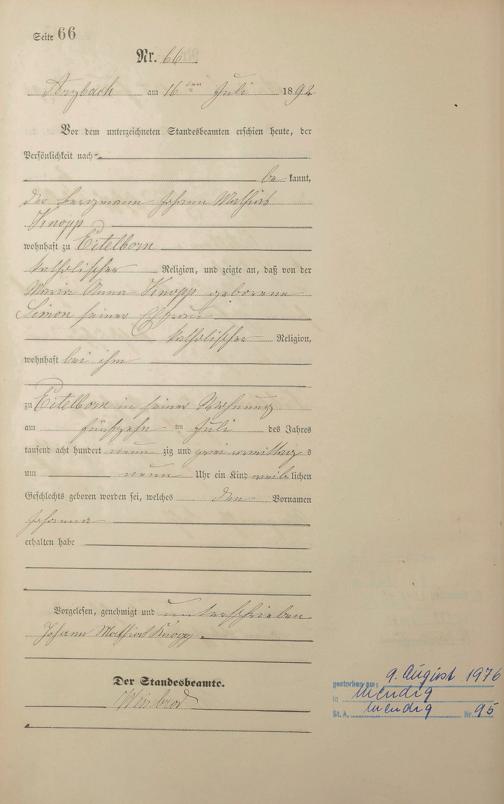 Seite 66
Nr. 66.
Arzbach am 16ten Juli 1892
Vor dem unterzeichneten Standesbeamten erschien heute, der
Persönlichkeit nach
be kannt,
der Bergmann Johann Mathias
Knopp
wohnhaft zu Eitelborn
katholischer Religion, und zeigte an, daß von der
Maria Anna Knopp geborene
Simon seiner Ehefrau
katholischer Religion,
wohnhaft bei ihm
zu Eitelborn in seiner Wohnung
am fünfzehn ten Juli des Jahres
tausend acht hundert neun zig und zwei vormittag s
um neun Uhr ein Kind weiblichen
Geschlechts geboren worden sei, welches den Vornamen
Johanna
erhalten habe
Vorgelesen, genehmigt und unterschrieben
Johann Mathias Knopp
Der Standesbeamte.
gestorben am: 9. August 1976
in Mendig
St. A. Mendig Nr. 95